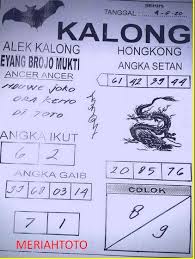 SENIN
TANGGAL : 4-5-20
KALONG
ALEK KALONG
HONGKONG
EYANG BROJO MUKTI
ANGKA SETAN
ANCER ANCER
61 42 39 44
MBUWE JOKO
ORA KENO
DI TOTO
ANGKA IKUT
6 2
ANGKA GAIB
20 85 76
33 68 03 14
COLOK
7 1
8
9
MERIAHTOTO